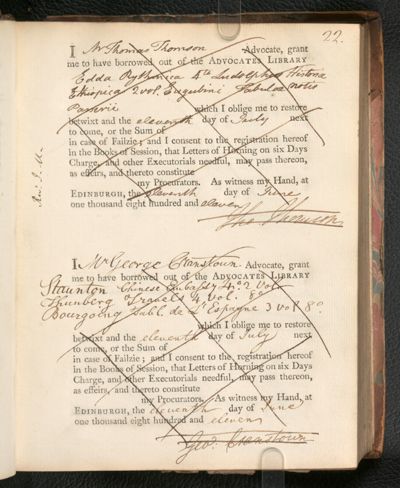 22.
I Mr Thomas Thomson Advocate, grant
me to have borrowed out of the ADVOCATES LIBRARY
Edda Rythmica 4to Ludolphus Historia
Ethiopica 2 vol. Eugubini Tabulae notis
Passerii which I oblige me to restore
betwixt and the eleventh day of July next
to come, or the Sum of
in case of Failzie; and I consent to the registration hereof
in the Books of Session, that Letters of Horning on six Days
Charge, and other Executorials needful, may pass thereon,
as effeirs, and thereto constitute
my Procurators. As witness my Hand, at
EDINBURGH, the eleventh day of June
one thousand eight hundred and eleven
Tho. Thomson
I Mr George Cranstoun Advocate, grant
me to have borrowed out of the ADVOCATES LIBRARY
Staunton Chinese Embassy 4o 2 vol.
Thunberg Travels 4 vol. 8o
Bourgoing Tabl. de L'Espagne 3 vol 8o.
which I oblige me to restore
betwixt and the eleventh day of July next
to come, or the Sum of
in case of Failzie; and I consent to the registration hereof
in the Books of Session, that Letters of Horning on six Days
Charge, and other Executorials needful, may pass thereon,
as effeirs, and thereto constitute
my Procurators. As witness my Hand, at
EDINBURGH, the eleventh day of June
one thousand eight hundred and eleven
Geo. Cranstoun